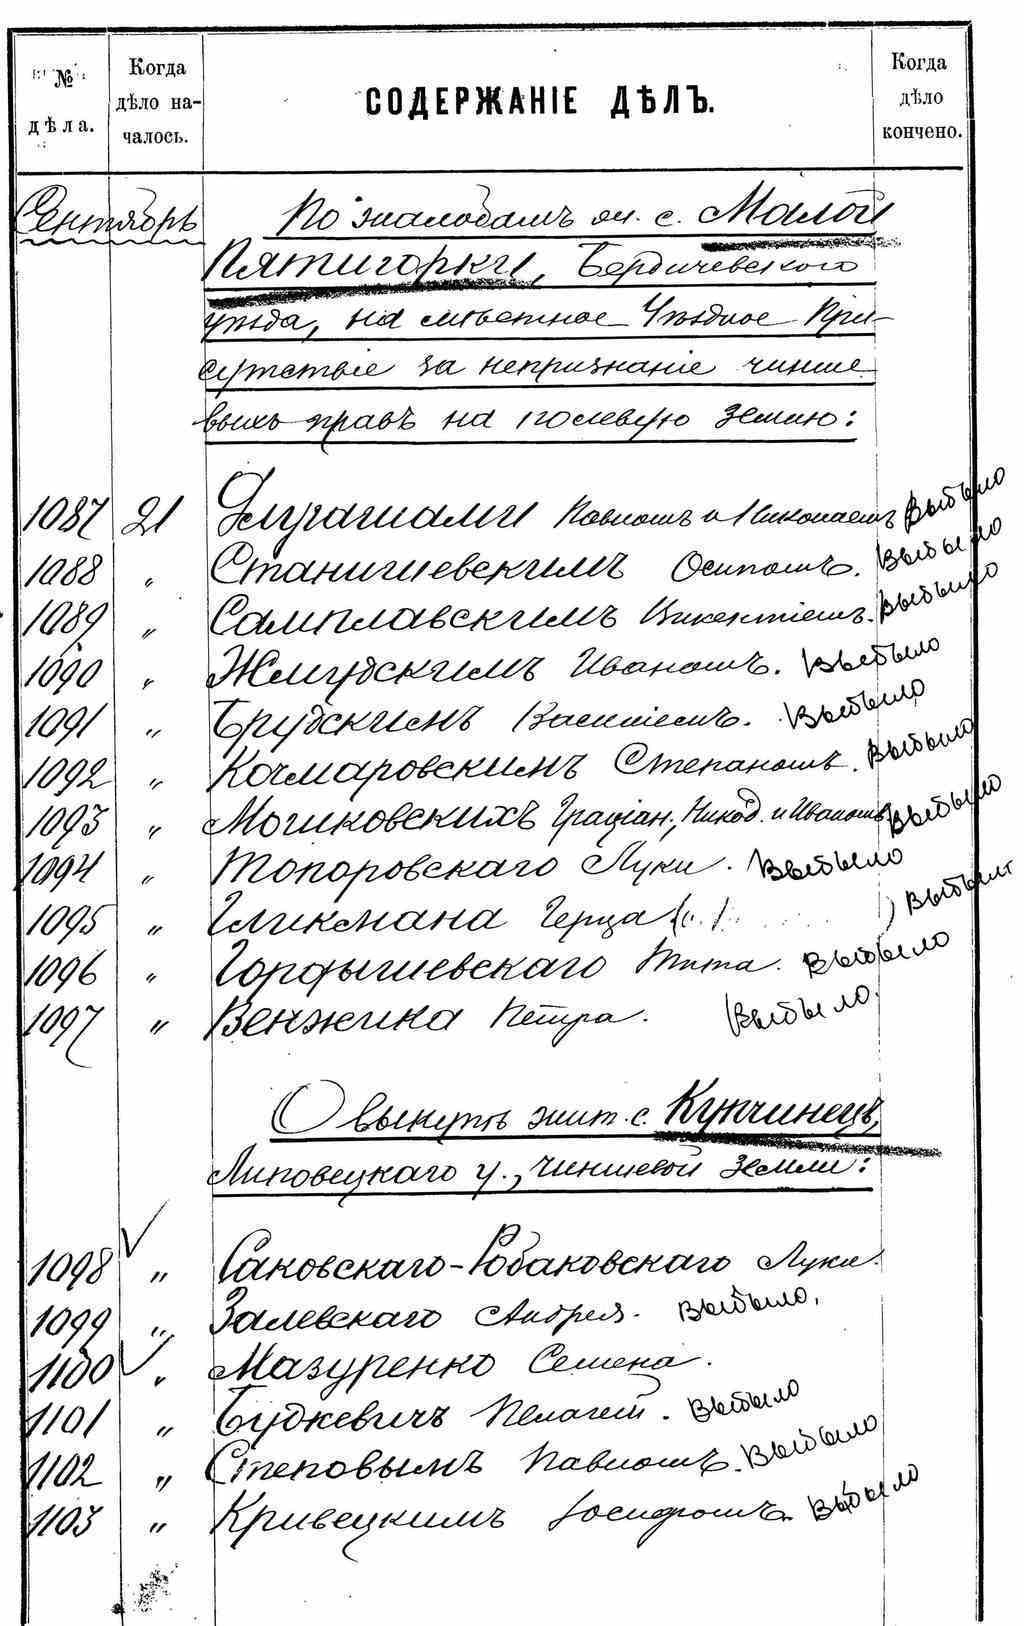 № дѣла.
Когда дѣло на-
чалось.
СОДЕРЖАНІЕ ДѢЛЪ.
Когда дѣло кончено.
Сентябрь
По жалобамъ жит. с. Малой
Пятигорки, Бердичевского
уѣзда, на мѣстное Уѣздное При-
сутствіе за непризнаніе чинше-
выхъ правъ на полевую землю:
1087 21 Павломъ и Николаемъ Выбыло
1088 " Станишевскимъ Осипомъ. Выбыло
1089 " Самплавскимъ Викентіемъ. Выбыло
1090 " Жмудскимъ Иваномъ. Выбыло
1091 " Брудскимъ Василіемъ. Выбыло
1092 " Качмаровскимъ Степаномъ. Выбыло
1093 " Могиковскихъ Граціан., Никод. и Иваномъ Выбыло
1094 " Топоровскаго Луки. Выбыло
1095 " Гликмана Герца Выбыло
1096 " Гордышевскаго Тита. Выбыло
1097 " Венжика Петра. Выбыло.
О выкупѣ жит. с. Купчинецъ,
Липовецкаго у., чиншевой земли:
1098 " Саковскаго-Робаковскаго Луки.
1099 " Залевскаго Андрея. Выбыло.
1100 " Мазуренко Семена.
1101 " Будкевичъ Пелагеи. Выбыло
1102 " Степовымъ Павломъ. Выбыло
1103 " Кривецкимъ Іосифомъ. Выбыло